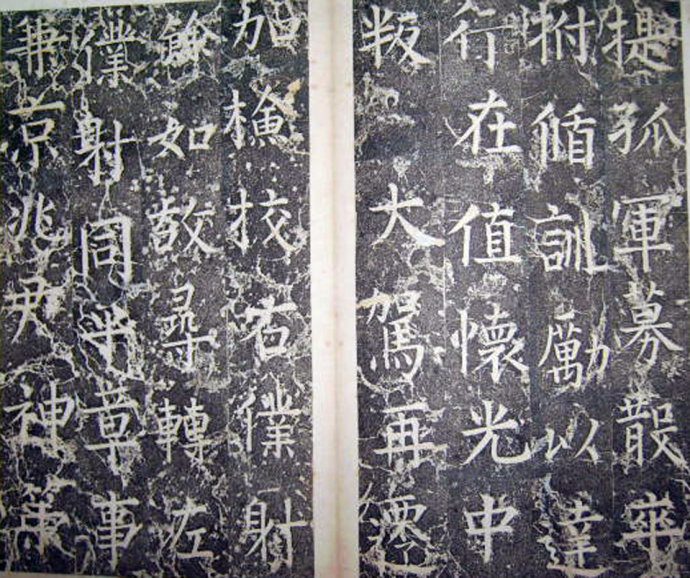 提孤軍募散卒
拊循訓勵以達
行在值懷光中
叛大駕再遷
加檢挍右僕射
餘如故尋轉左
僕射同平章事
兼京兆尹神策